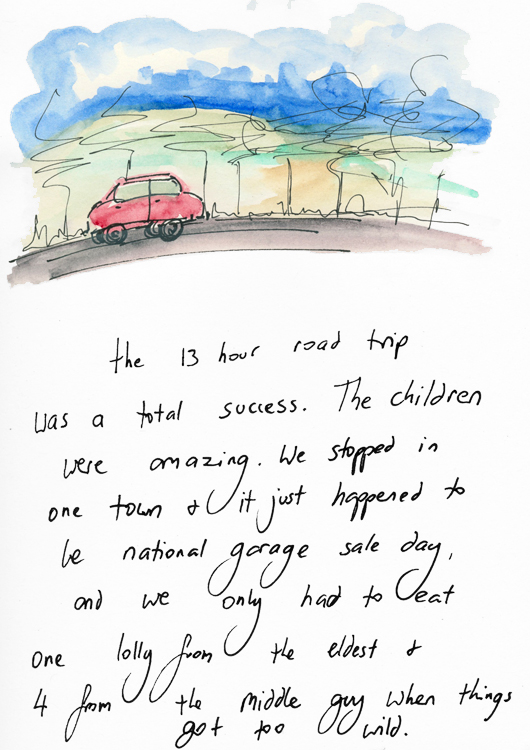 the 13 hour road trip
was a total success. The children
were amazing. We stopped in
one town & it just happened to
be national garage sale day,
and we only had to eat
one lolly from the eldest &
4 from the middle guy when things
got too wild.